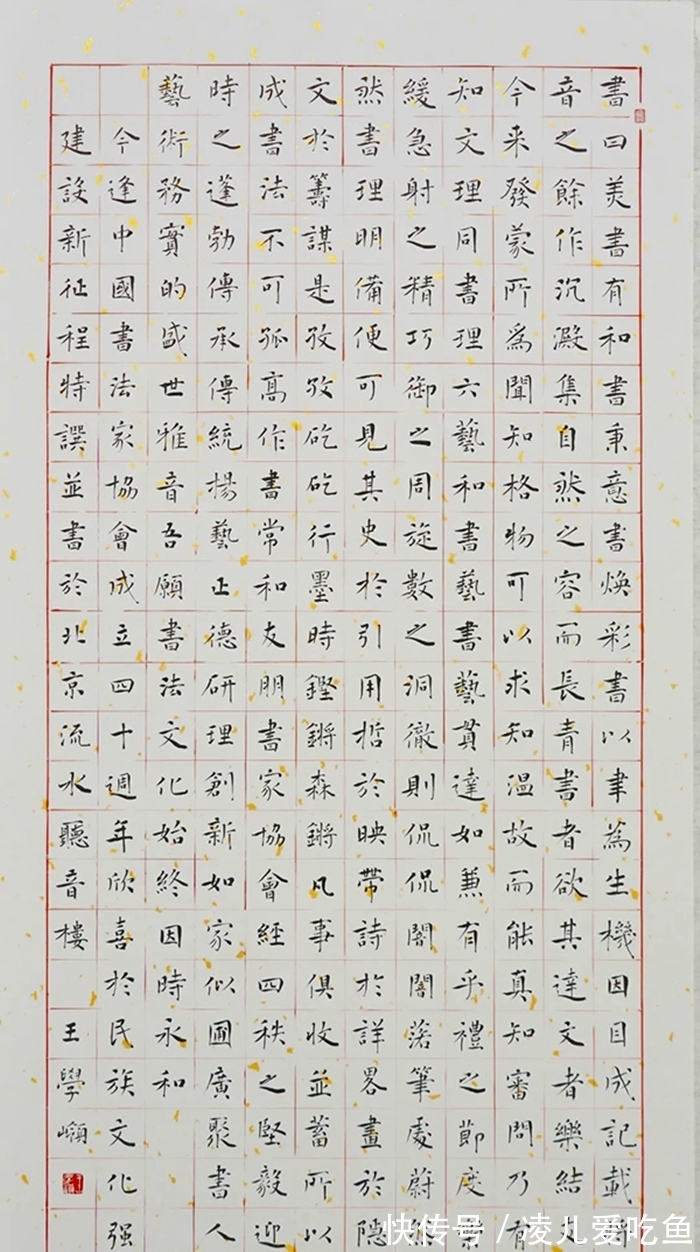 書曰美書有和書秉意書煥彩書以聿為生機因目成記載
音之餘作沉澱集自然之容而長青書者欲其達文者樂結
今来發蒙所為聞知格物可以求知温故而能真知審問乃有
知文理同書理六藝和書藝書藝貫達如兼有乎禮之節度
緩急射之精巧御之周旋數之洞徹則侃侃誾誾落筆處蔚
然書理明備便可見其史於引用哲於映帶詩於詳畧畫於隱
文於籌謀是孜孜矻矻行墨時鏗鏘森鏘凡事俱收並蓄所以
成書法不可孤高作書常和友朋書家協會經四秩之堅毅迎
時之蓬勃傳承傳統揚藝正德研理創新如家似圃廣聚書人
藝術務實的盛世雅音吾願書法文化始終因時永和
今逢中國書法家協會成立四十週年欣喜於民族文化强
建設新征程特譔並書於北京流水聽音樓 王學嶺
快传号／凌儿爱吃鱼